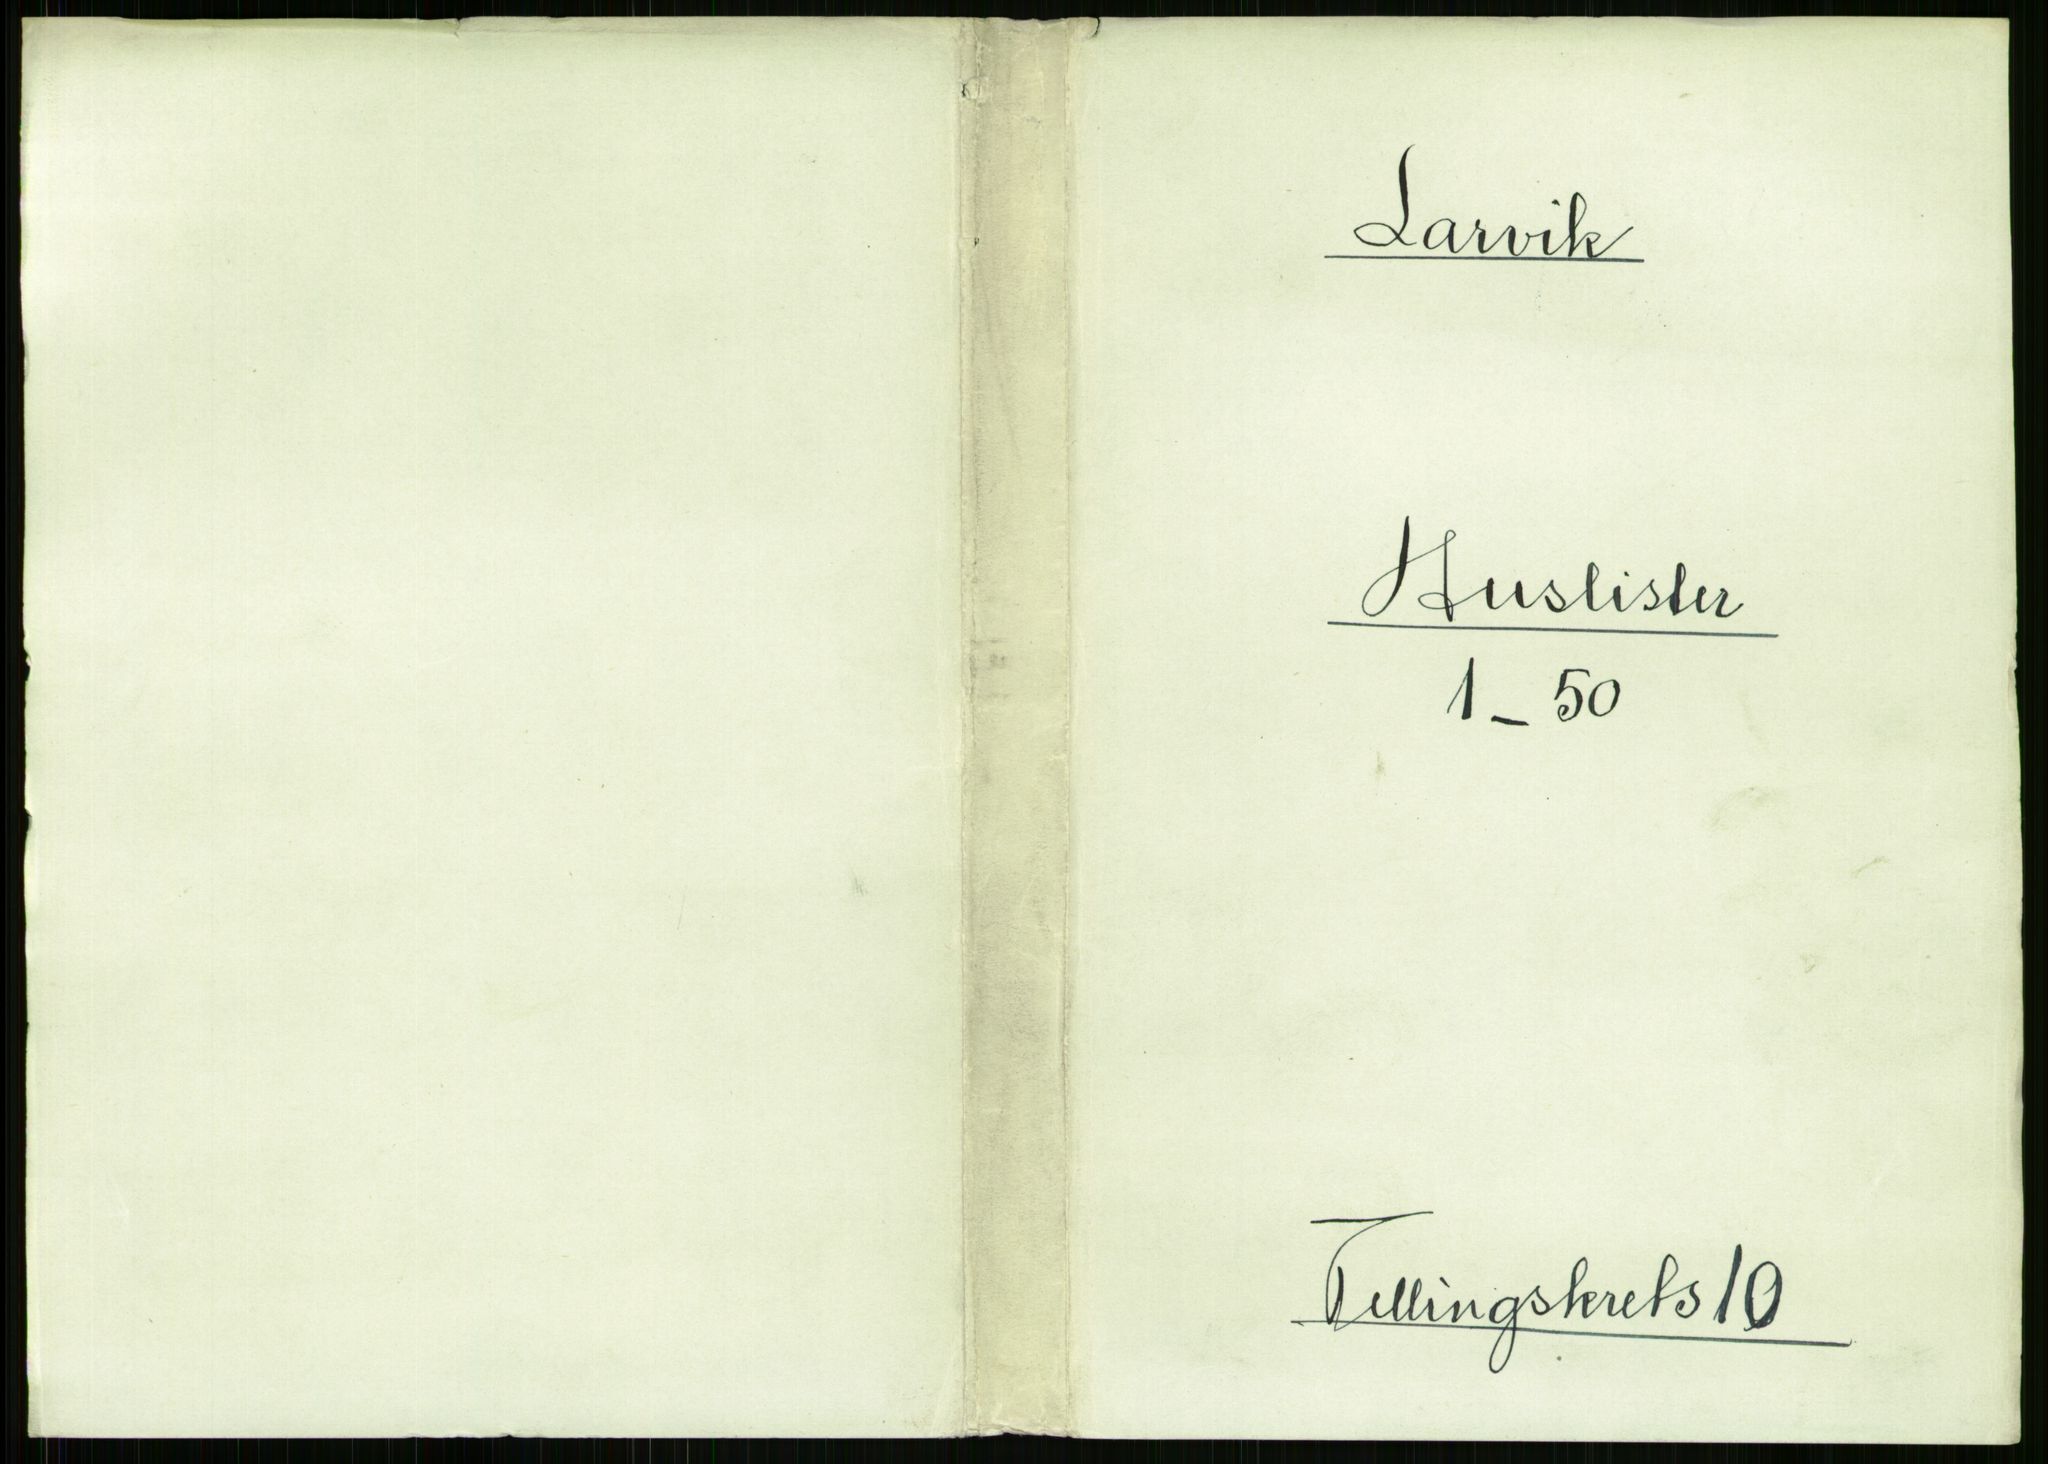 Larvik
Huslister
1 - 50
Tellingskrets 10